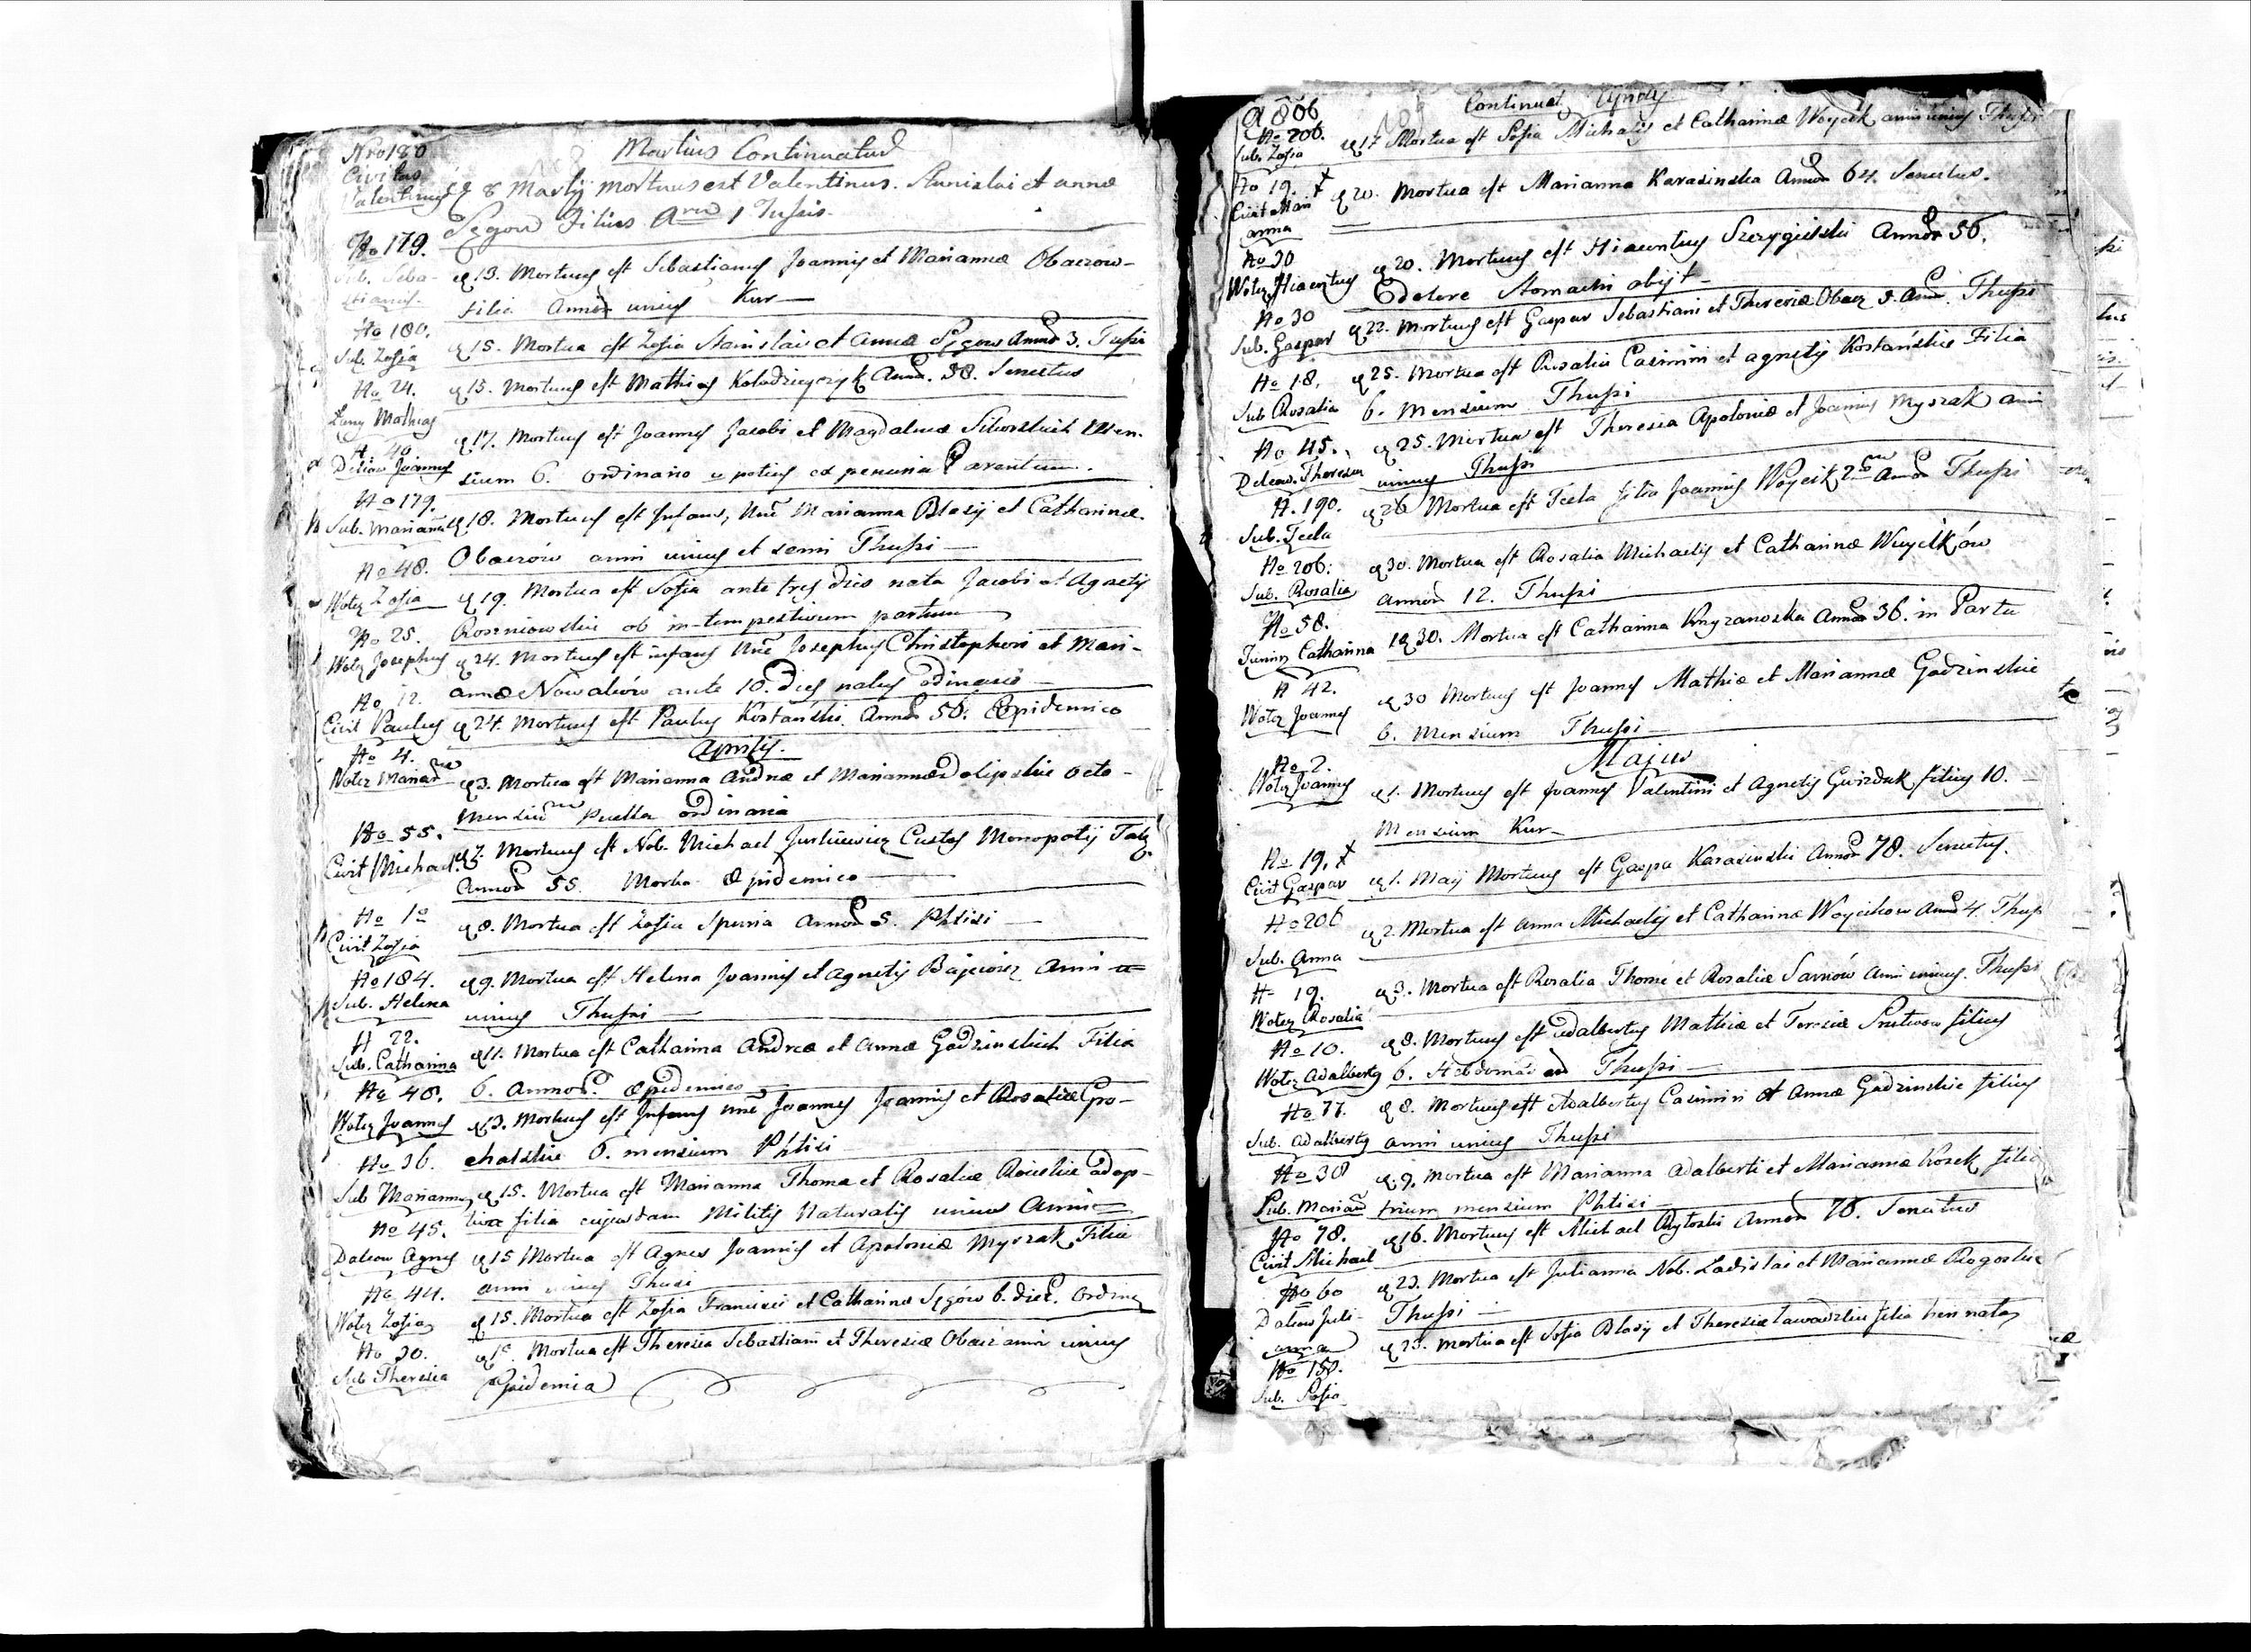 Martius Continuatus
Nro 180
Civitas
Valentinus
8 Martij mortuus est Valentinus Stanislai et Anna
Segow Filius 1 Tussis
No 179.
Sub. Sebastianus
13. Mortuus est Sebastianus Joannis et Mariannæ Obaerow
filiu unius Kur
No 180.
Sub. Zofia
15. Mortua est Zofia Stanislai et Annæ Segow Annor 3. Tussi
No 24.
Lany Mathias
15. Mortuus est Mathias Kolodzieyczyk Annor. 58. Senectus
No 40
Joannes
17. Mortuus est Joannes Jacobi et Magdalenæ Sikorskich Men-
sium 6. ordinario potius ex penuria Parentum.
No 179.
Sub. Marianna
18. Mortuus est Infans, Nne Marianna Blasij et Catharinæ
Obaerów anni unius et semi Thussi
No 48.
Woler Zofia
19. Mortua est Sofia ante tres dies nata Jacobi et Agnetis
ob intempestivum partum
No 25.
Woler Josephus
24. Mortuus est infans Nne Josephus Christophori et Mari-
annæ Nowaków ante 10. dies natus ordinario
No 12.
Civit Paulus
24. Mortuus est Paulus Kostański Annor 56. Epidemico
Aprilis.
No 4.
3. Mortua est Marianna Andreæ et Mariannæ octo
mensium puella ordinaria
No 55.
Civit Michael
7. Mortuus est Nob. Michael Custos Monopolij Tab
Annor 55. Morbo Epidemico
No 10
Civit Zofia
8. Mortua est Zofia Spuria Annor 5. Phtisi
No 184.
Sub. Helena
9. Mortua est Helena Joannis et Agnetis Anni
unius Thussi
No 22.
Sub. Catharina
11. Mortua est Catharina Andreæ et Annæ Godzinskich Filia
6. Annor. Epidemico
No 48.
Woler Joannes
13. Mortuus est Infans Nne Joannes Joannis et Rosaliæ Gro-
chalskie 6. mensium Phtisi
No 36.
Sub Marianna
15. Mortua est Marianna Thoma et Rosaliæ adop-
tiva filia cujusdam Militis Naturalis unius Anni
No 45.
Agnes
15 Mortua est Agnes Joannis et Apoloniæ Myszak Filia
anni unius Thussi
No 44.
Woler Zofia
15. Mortua est Zofia Francisci et Catharinæ Sęgów 6. dier. Ordina
No 30.
Sub Theresia
Mortua est Theresia Sebastiani et Theresiæ Obaer anni unius
Epidemia
1806
Continuat Aprilis
No 206.
Sub. Zofia
17 Mortua est Sofia Michaelis et Catharinæ Woycik anni unius Thussi
No 19.
Civit Mari
anna
20. Mortua est Marianna Karasinska Annor 64. Senectus.
No 30
Woler Hiacentus
20. Mortuus est Hiacentus Annor 56.
dolore stomachi obijt
No 30
Sub. Gaspar
22. Mortuus est Gaspar Sebastiani et Theresiæ Obaer 3. Annor. Thussi
No 18.
Sub Rosalia
25. Mortua est Rosalia Casimiri et Agnetis Kostańskie Filia
6. Mensium Thussi
No 45.
Theresia
25. Mortua est Theresia Apoloniæ et Joannis Myszak anni
unius Thussi
N. 190.
Sub. Tecla
26 Mortua est Tecla filia Joannis Woycik Annor Thussi
No 206.
Sub. Rosalia
30. Mortua est Rosalia Michaelis et Catharinæ Wuycików
Annor 12. Thussi
No 58.
Catharina
30. Mortua est Catharina Krzyzanoska Annor 36. in Partu
N 42.
Woler Joannes
30 Mortuus est Joannes Mathiæ et Mariannæ Godzinskie
6. Mensium Thussi
Majus
No 2.
Woler Joannes
1. Mortuus est Joannes Valentini et Agnetis Gwizduk filius 10.
Mensium Kur
No 19.
Civit Gaspar
1. Maij Mortuus est Gaspar Karasinski Annor 78. Senectus.
No 206
Sub. Anna
2. Mortua est Anna Michaelis et Catharinæ Woycikow Annor 4. Thus
No 19.
Woler Rosalia
3. Mortua est Rosalia Thomæ et Rosaliæ Sarnów Anni unius. Thussi
No 10.
Woler Adalbertus
8. Mortuus est Adalbertus Mathiæ et Teresiæ filius
6. Hebdomadarum Thussi
No 77.
Sub. Adalbertus
8. Mortuus est Adalbertus Casimiri et Annæ Godzinskie filius
anni unius Thussi
No 38
Sub. Mariann
9. Mortua est Marianna Adalberti et Mariannæ Kosek filia
trium mensium Phtisi
No 78.
Civit Michael
16. Mortuus est Michael Rytoski Annor 78. Senectus
No 60
Juli-
anna
23. Mortua est Julianna Nob. Ladislai et Mariannæ Rogoskie
Thussi
No 158.
Sub. Sofia
23. Mortua est Sofia Blasij et Theresiæ filia nata